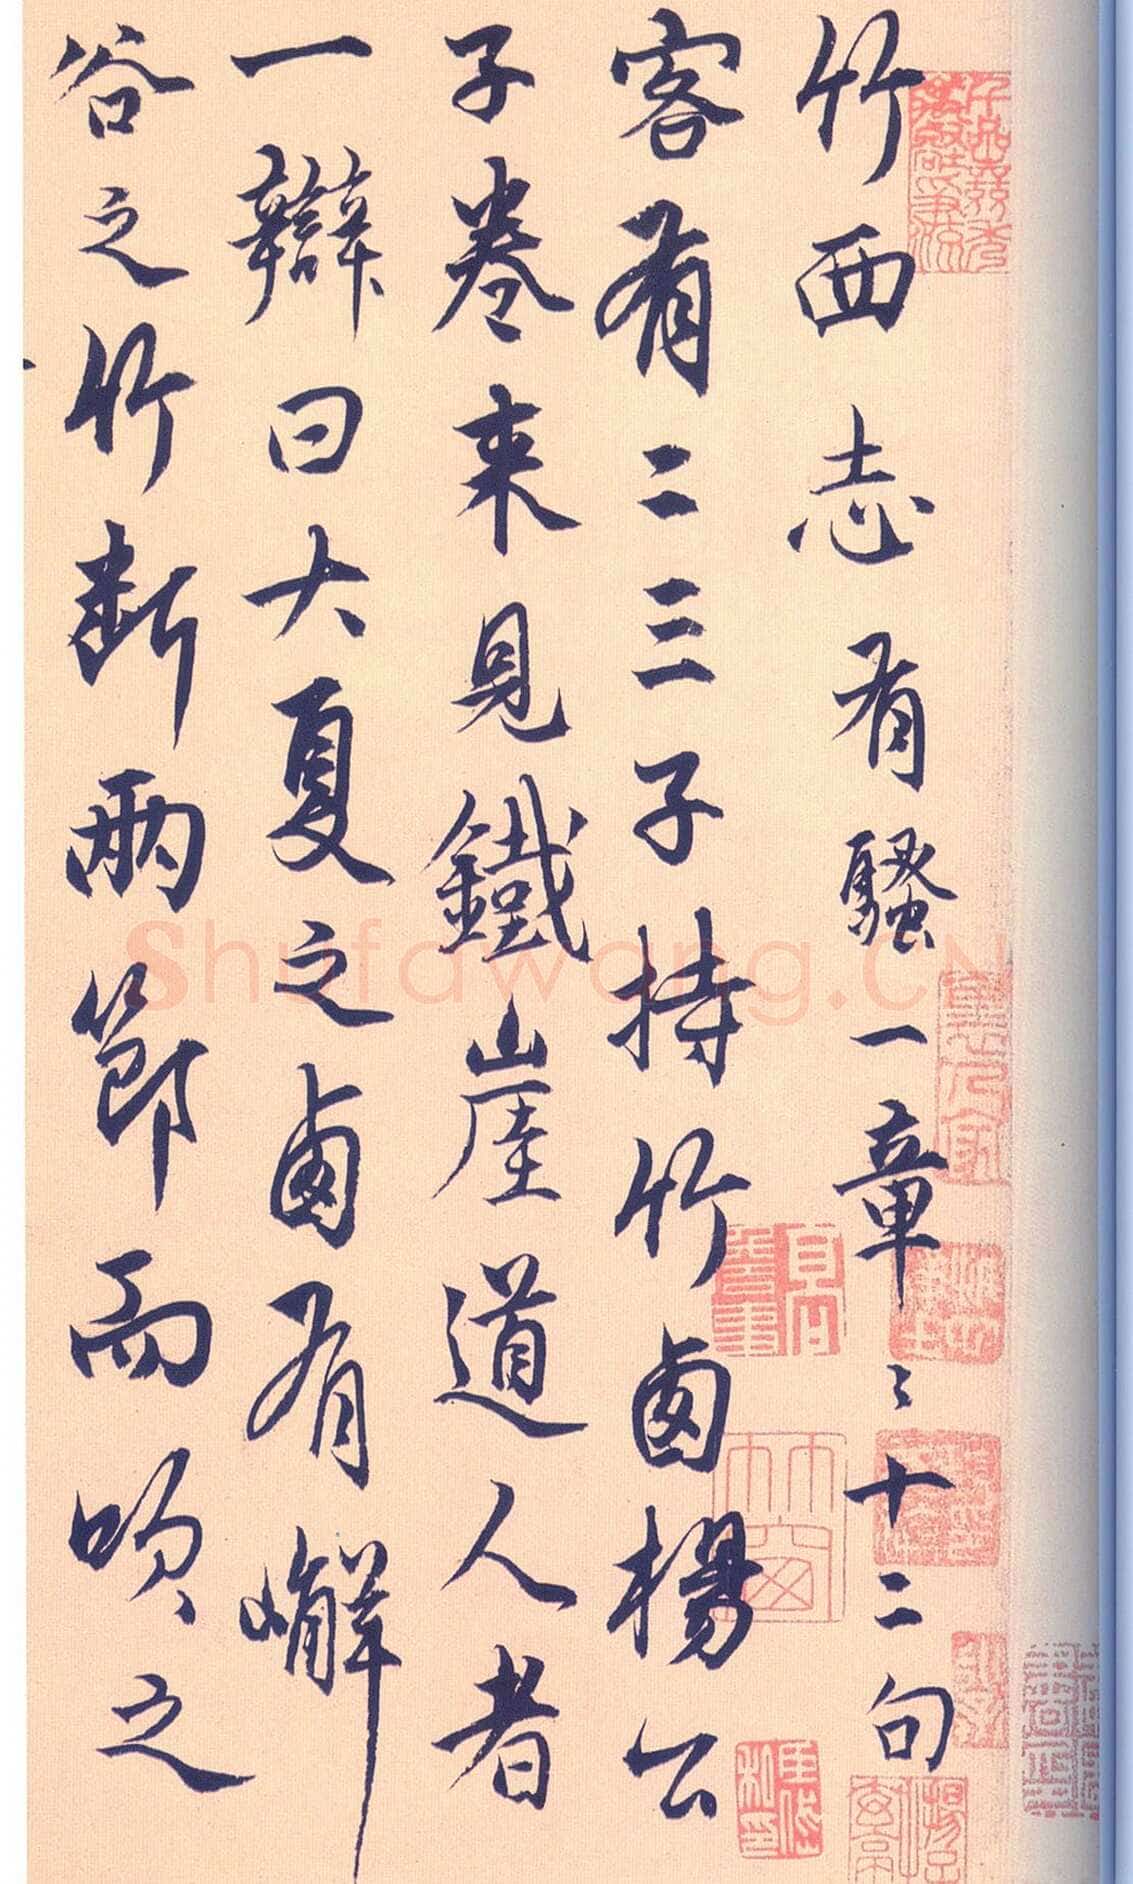 竹西志有騷一章〻〻十二句
客有二三子持竹西楊公
子卷来見鐵崖道人者
一辯曰大夏之西有嶰
谷之竹断兩節而吹之
Shufawang.CN